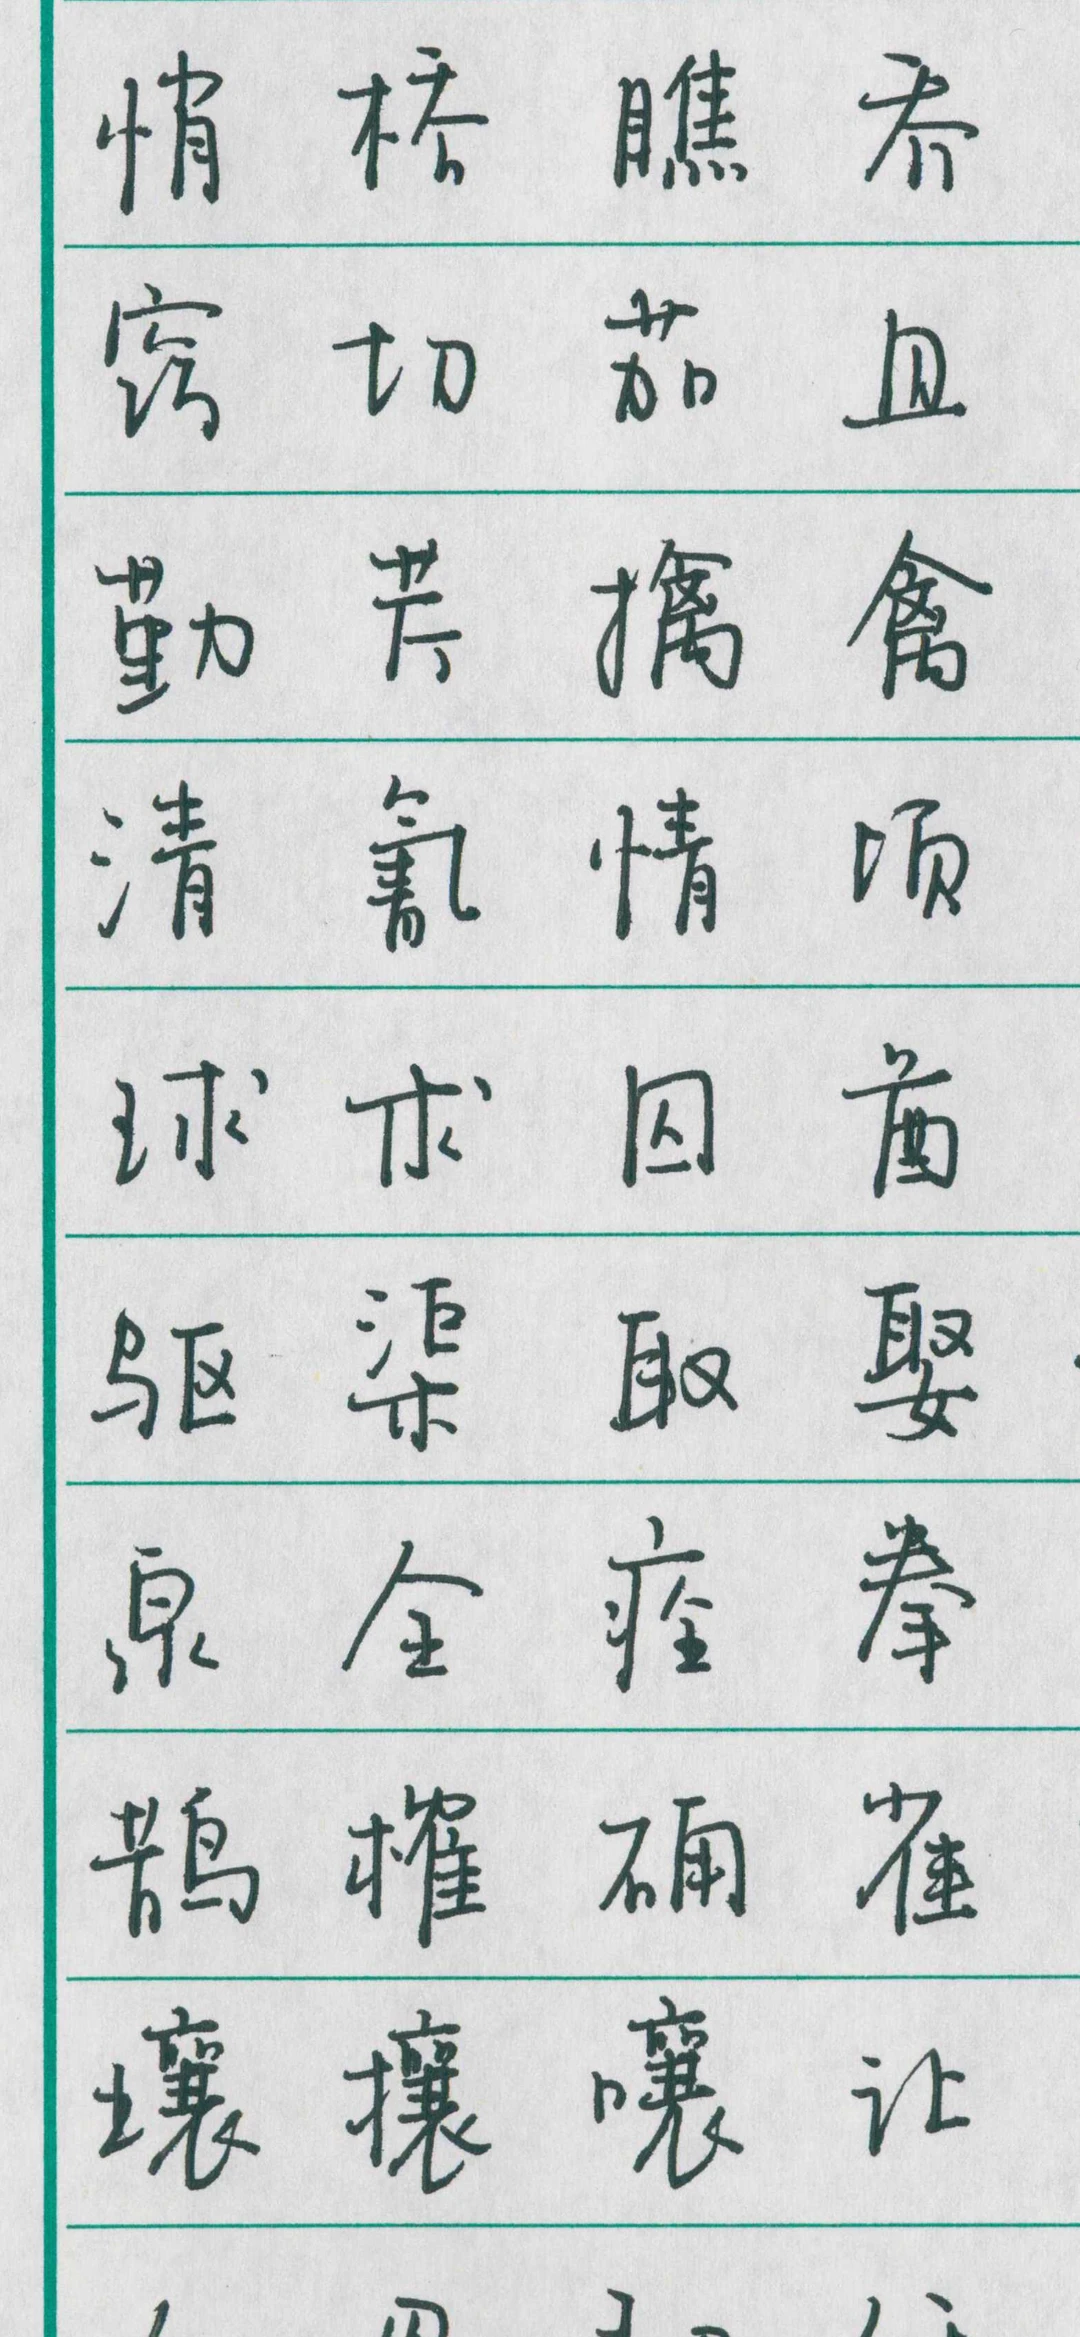 悄 桥 瞧 乔
窍 切 茄 且
勤 芹 擒 禽
清 氰 情 顷
球 求 囚 酋
驱 渠 取 娶
泉 全 痊 拳
鹊 榷 确 雀
壤 攘 嚷 让